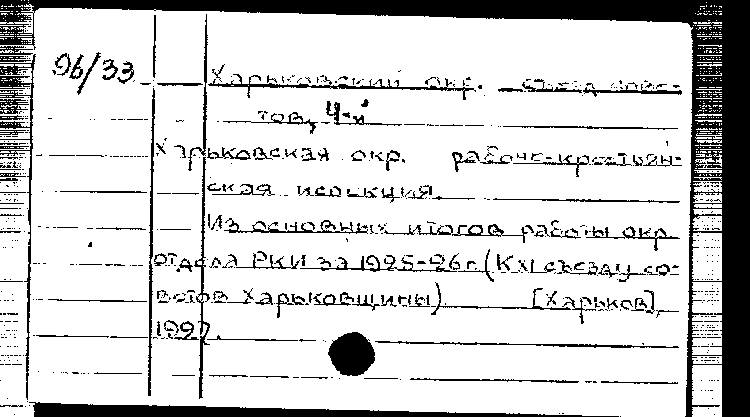 96/33
Харьковский окр. съезд сове-
тов, 4-й
Харьковская окр. рабоче-крестьян-
ская инспекция.
Из основных итогов работы окр.
отдела РКИ за 1925-26 г. (К XI съезду со-
ветов Харьковщины) [Харьков],
1927.